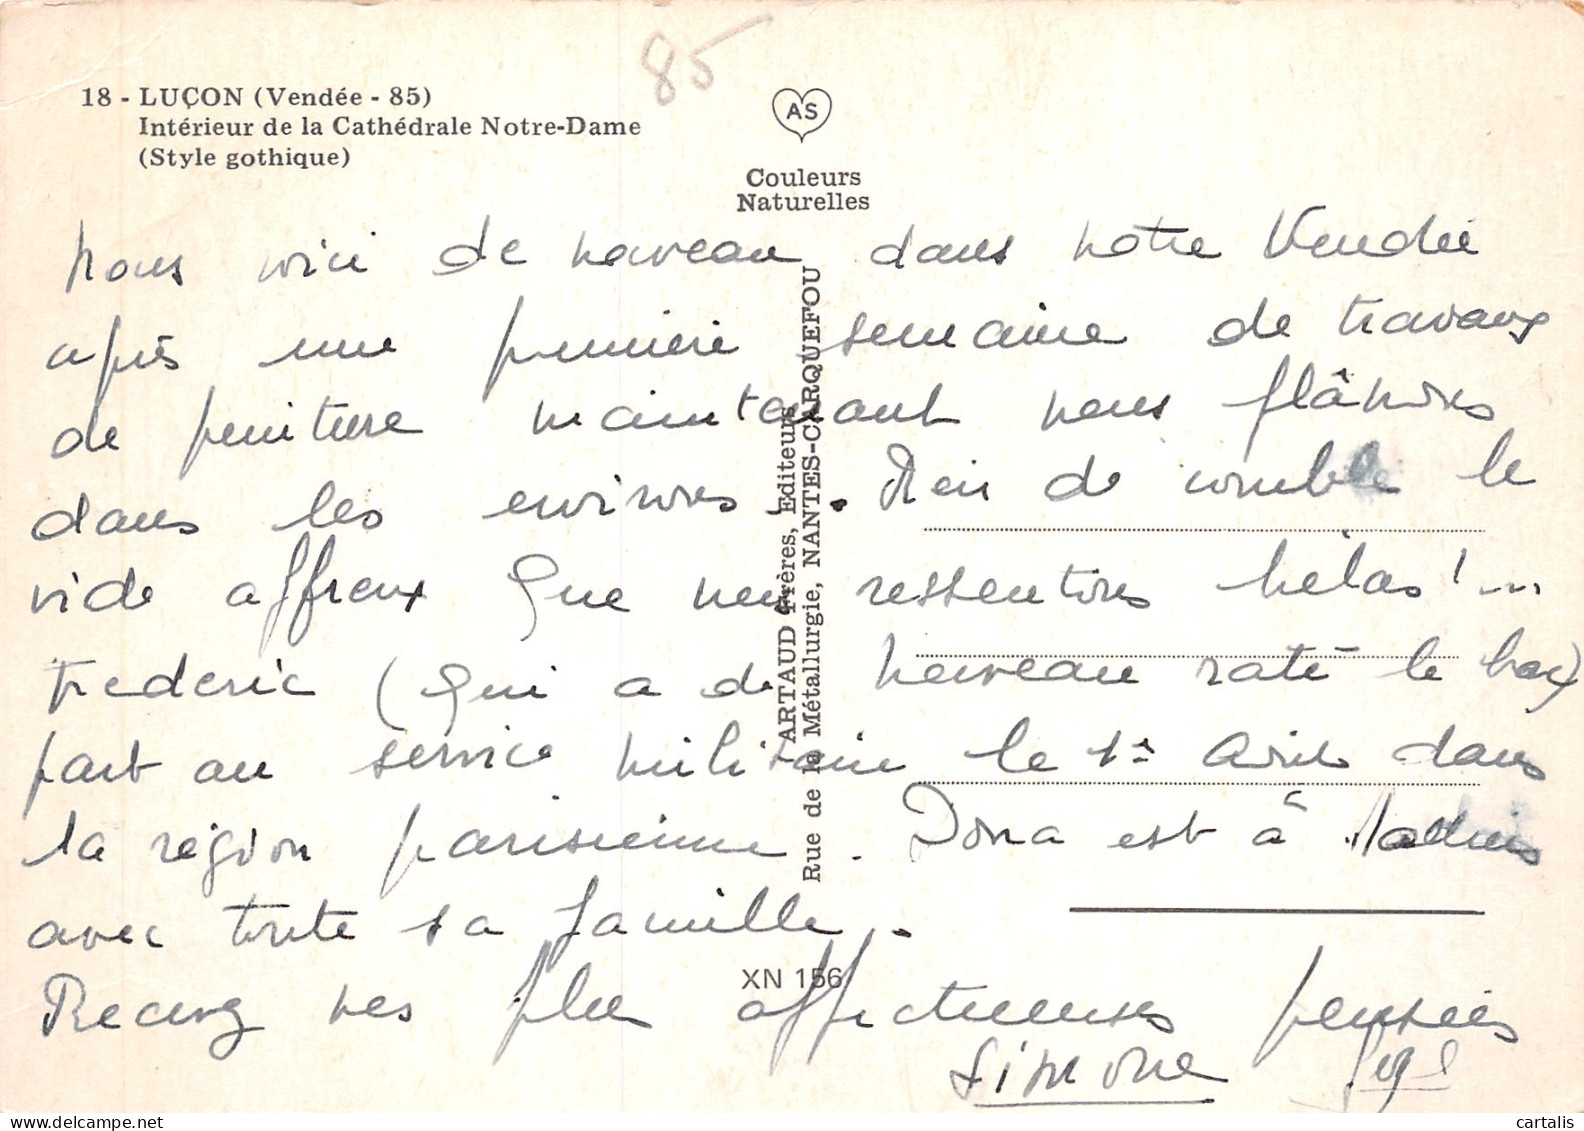 85
18 - LUÇON (Vendée - 85)
Intérieur de la Cathédrale Notre-Dame
(Style gothique)
AS
Couleurs
Naturelles
Nous voici de nouveau dans notre Vendée
après une première semaine de travaux
de peinture maintenant nous flânons
dans les environs. Rien ne comble le
vide affreux que nous ressentons hélas !...
Frederic (qui a de nouveau raté le bac)
part au service militaire le 1er Avril dans
la région parisienne. Dona est à
avec toute sa famille.
Recevez nos plus affectueuses pensées
Simone Serge
ARTAUD Frères, Editeurs
Rue de la Métallurgie, NANTES-CARQUEFOU
XN 156
cartalis
delcampe.net